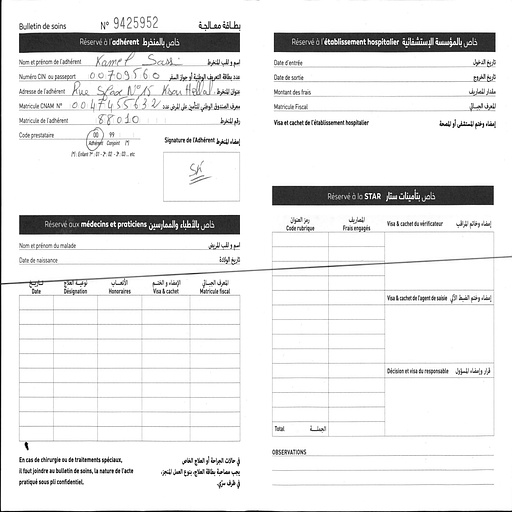 Bulletin de soins N° 9425952 بطاقة معالجة
Réservé à l'adhérent خاص بالمنخرط
Nom et prénom de l'adhérent Kamel Sassi إسم و لقب المنخرط
Numéro CIN ou passeport 00709560 عدد بطاقة التعريف الوطنية أو جواز السفر
Adresse de l'adhérent Rue N° 15 Ksour Hellal عنوان المنخرط
Matricule CNAM N° 0047455632
Matricule de l'adhérent 88010 رقم المنخرط
Code prestataire 00 99
Adhérent Conjoint (*)
(*) : Enfant 1er : 01 - 2° : 02 - 3° : 03 ... etc
Signature de l'Adhérent إمضاء المنخرط
Réservé aux médecins et praticiens خاص بالأطباء والممارسين
Nom et prénom du malade إسم و لقب المريض
Date de naissance تاريخ الولادة
تاريخ نوعية العلاج الأتعاب الإمضاء و الختم المعرف الجبائي
Date Désignation Honoraires Visa & cachet Matricule fiscal
En cas de chirurgie ou de traitements spéciaux,
il faut joindre au bulletin de soins, la nature de l'acte
pratiqué sous pli confidentiel.
في حالات الجراحة أو العلاج الخاص
يجب مصاحبة بطاقة العلاج، بنوع العمل المنجز،
في ظرف سري.
Réservé à l'établissement hospitalier خاص بالمؤسسة الإستشفائية
Date d'entrée تاريخ الدخول
Date de sortie تاريخ الخروج
Montant des frais مقدار المصاريف
Matricule Fiscal المعرف الجبائي
Visa et cachet de l'établissement hospitalier إمضاء وختم المستشفى أو المصحة
Réservé à la STAR خاص بتأمينات ستار
رمز العنوان المصاريف
Code rubrique Frais engagés
Visa & cachet du vérificateur إمضاء وخاتم المراقب
Visa & cachet de l'agent de saisie إمضاء وختم الضبط الآلي
Décision et visa du responsable قرار وإمضاء المسؤول
Total الجملة
OBSERVATIONS